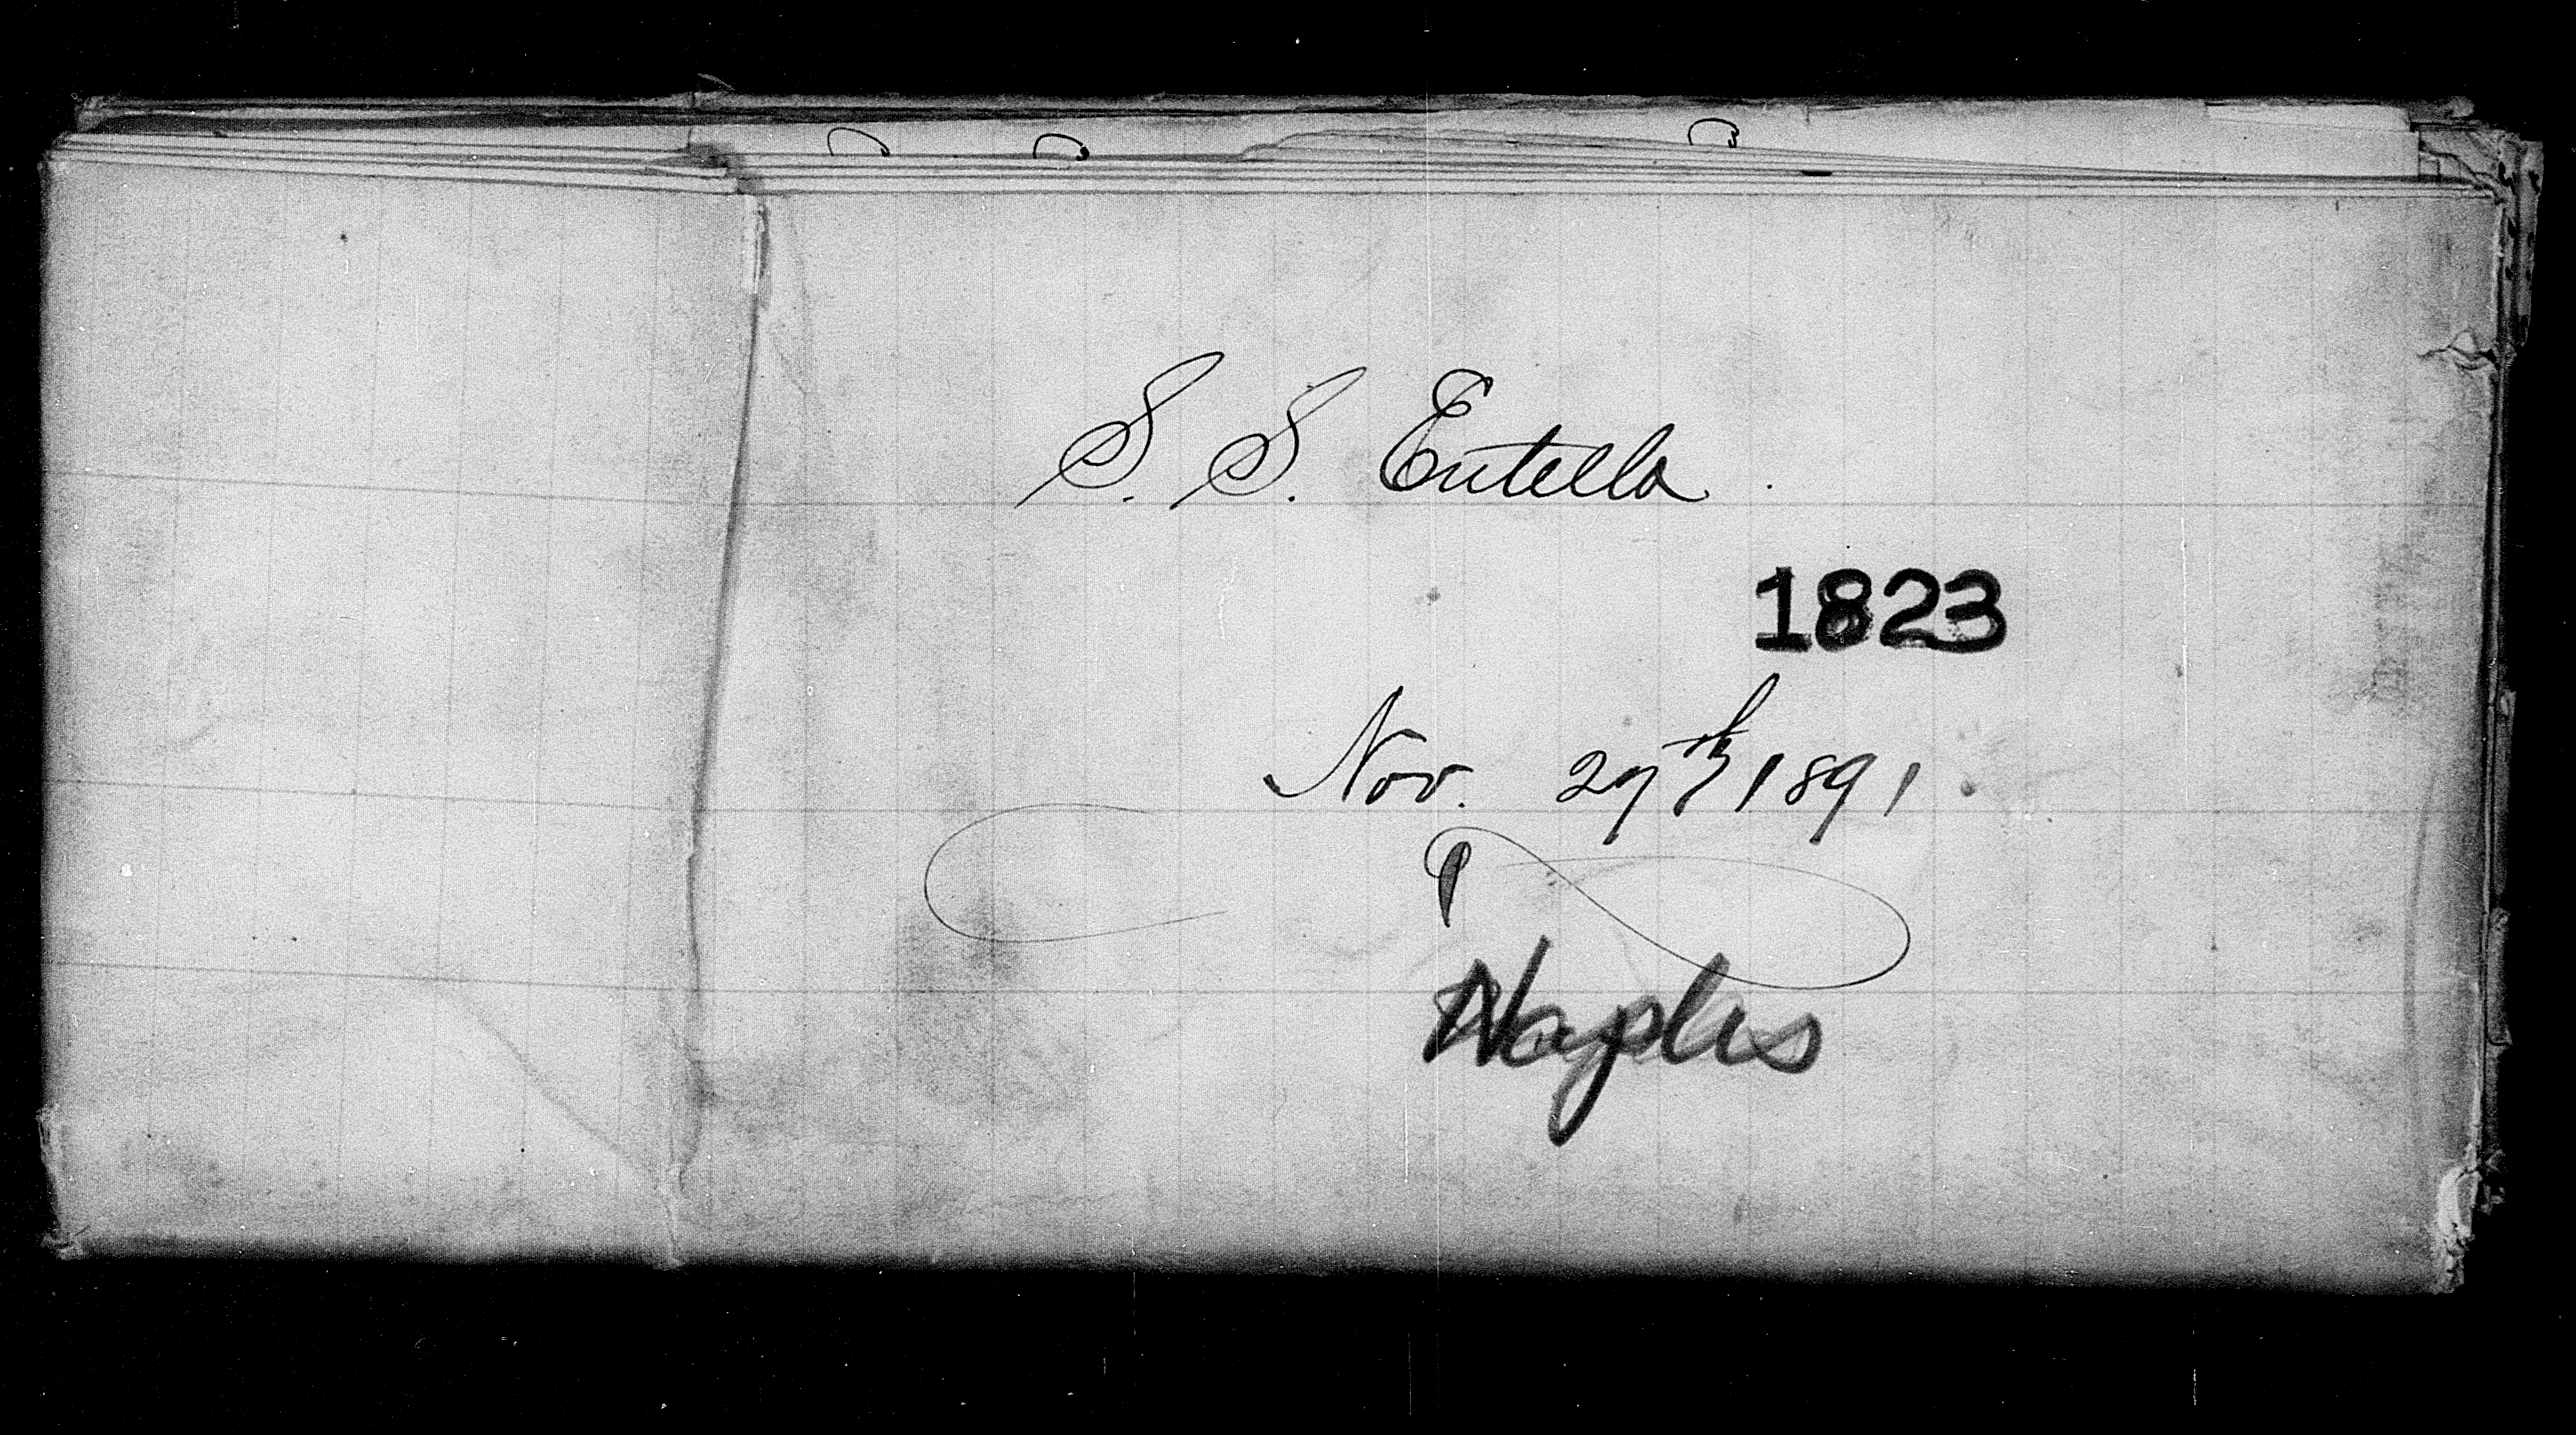 S. S. Entella.
1823
Nov. 27th 1891
Naples